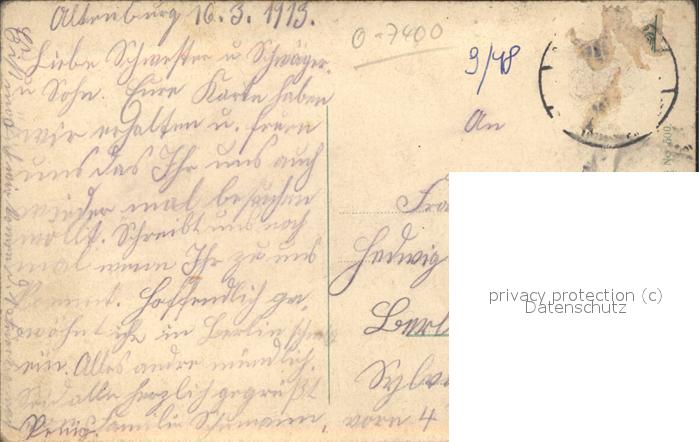 Altenburg 16.3.1913.
Liebe Schwester u Schwäger.
u Sohn. Eure Karte haben
wir erhalten u. freun
uns das Ihr uns auch
wieder mal besuchen
wollt. Schreibt uns noch
mal wenn Ihr zu uns
kommt. Hoffendlich ge,
wöhnt ihr in Berlin
ein. Alles andre mündlich.
Seid alle herzlich gegrüßt
Familie Schumann.
0-7400
9/48
An
Fra
Hedwig
Berl
Sylve
vorn 4
privacy protection (c)
Datenschutz